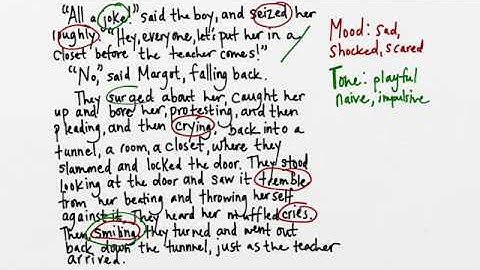 "All a joke!" said the boy, and seized her
roughly. "Hey, everyone, let's put her in a
closet before the teacher comes!"
"No," said Margot, falling back.
They surged about her, caught her
up and bore her, protesting, and then
pleading, and then crying, back into a
tunnel, a room, a closet, where they
slammed and locked the door. They stood
looking at the door and saw it tremble
from her beating and throwing herself
against it. They heard her muffled cries.
Then, smiling, they turned and went out
back down the tunnnel, just as the teacher
arrived.
Mood: sad,
shocked, scared
Tone: playful
naive, impulsive